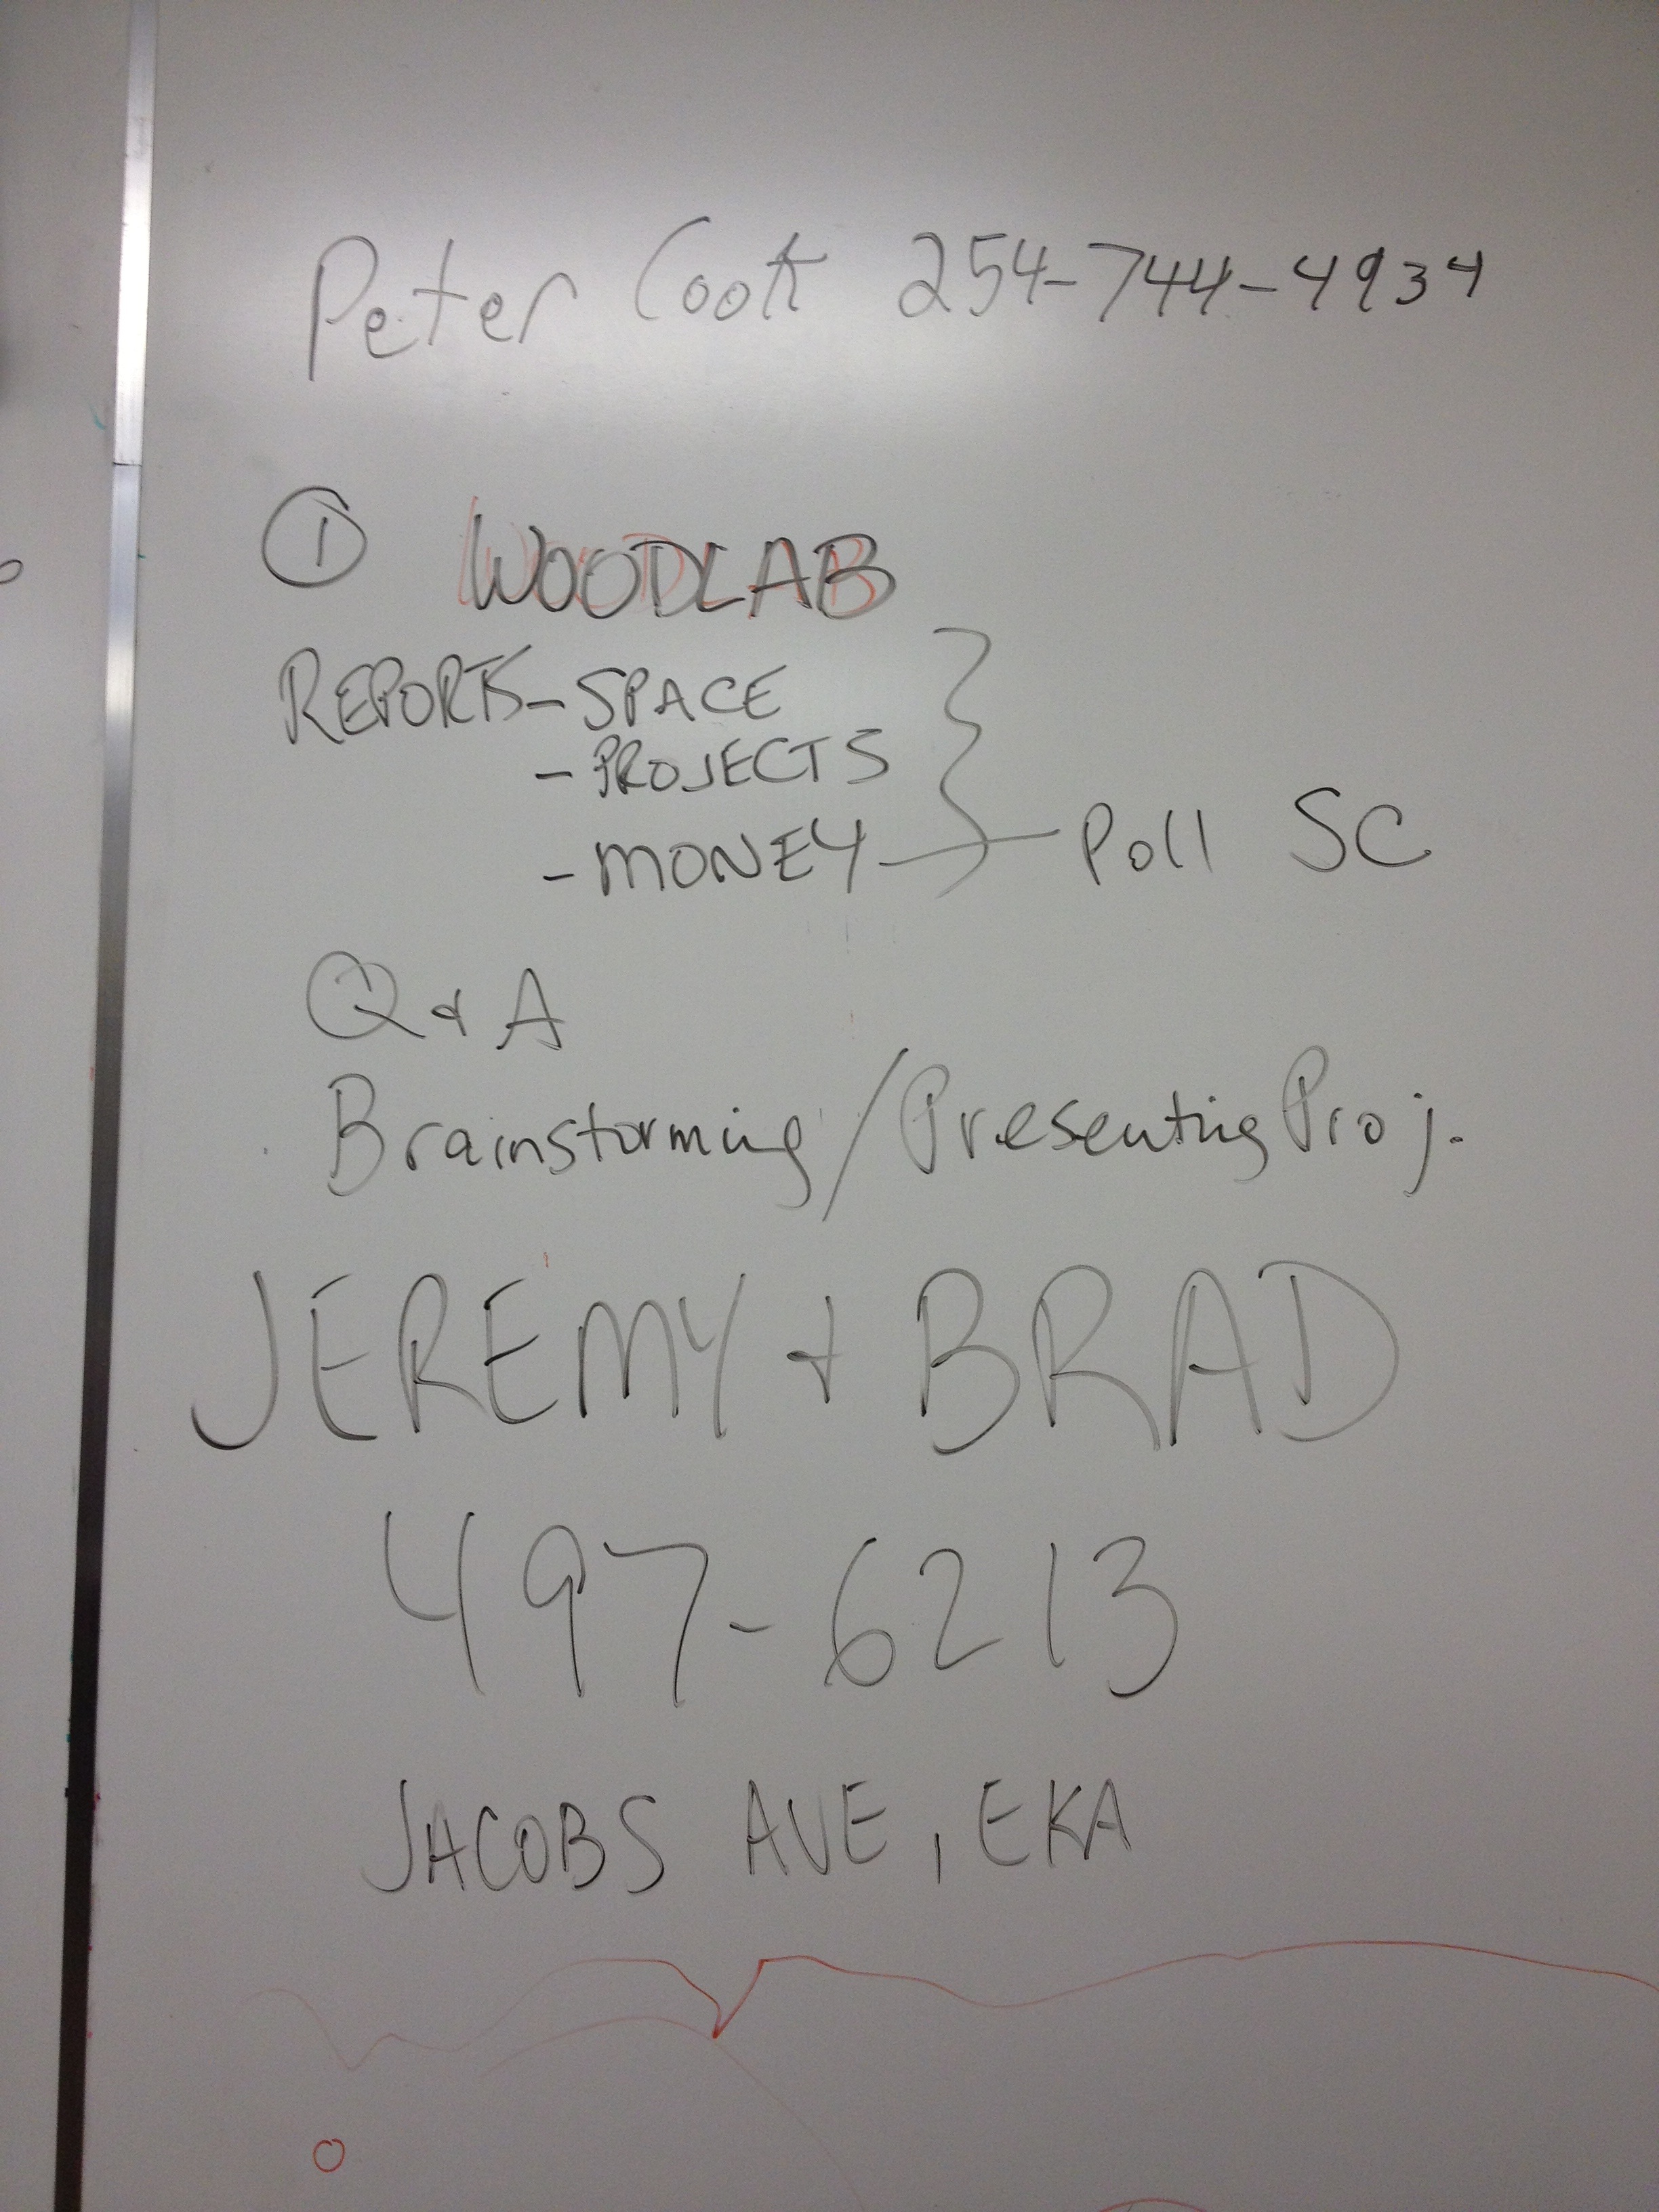 Peter Cook 254-744-4934
① WOODLAB
REPORTS - SPACE
- PROJECTS
- MONEY Poll SC
Q & A
Brainstorming/Presenting Proj.
JEREMY & BRAD
497-6213
JACOBS AVE, EKA